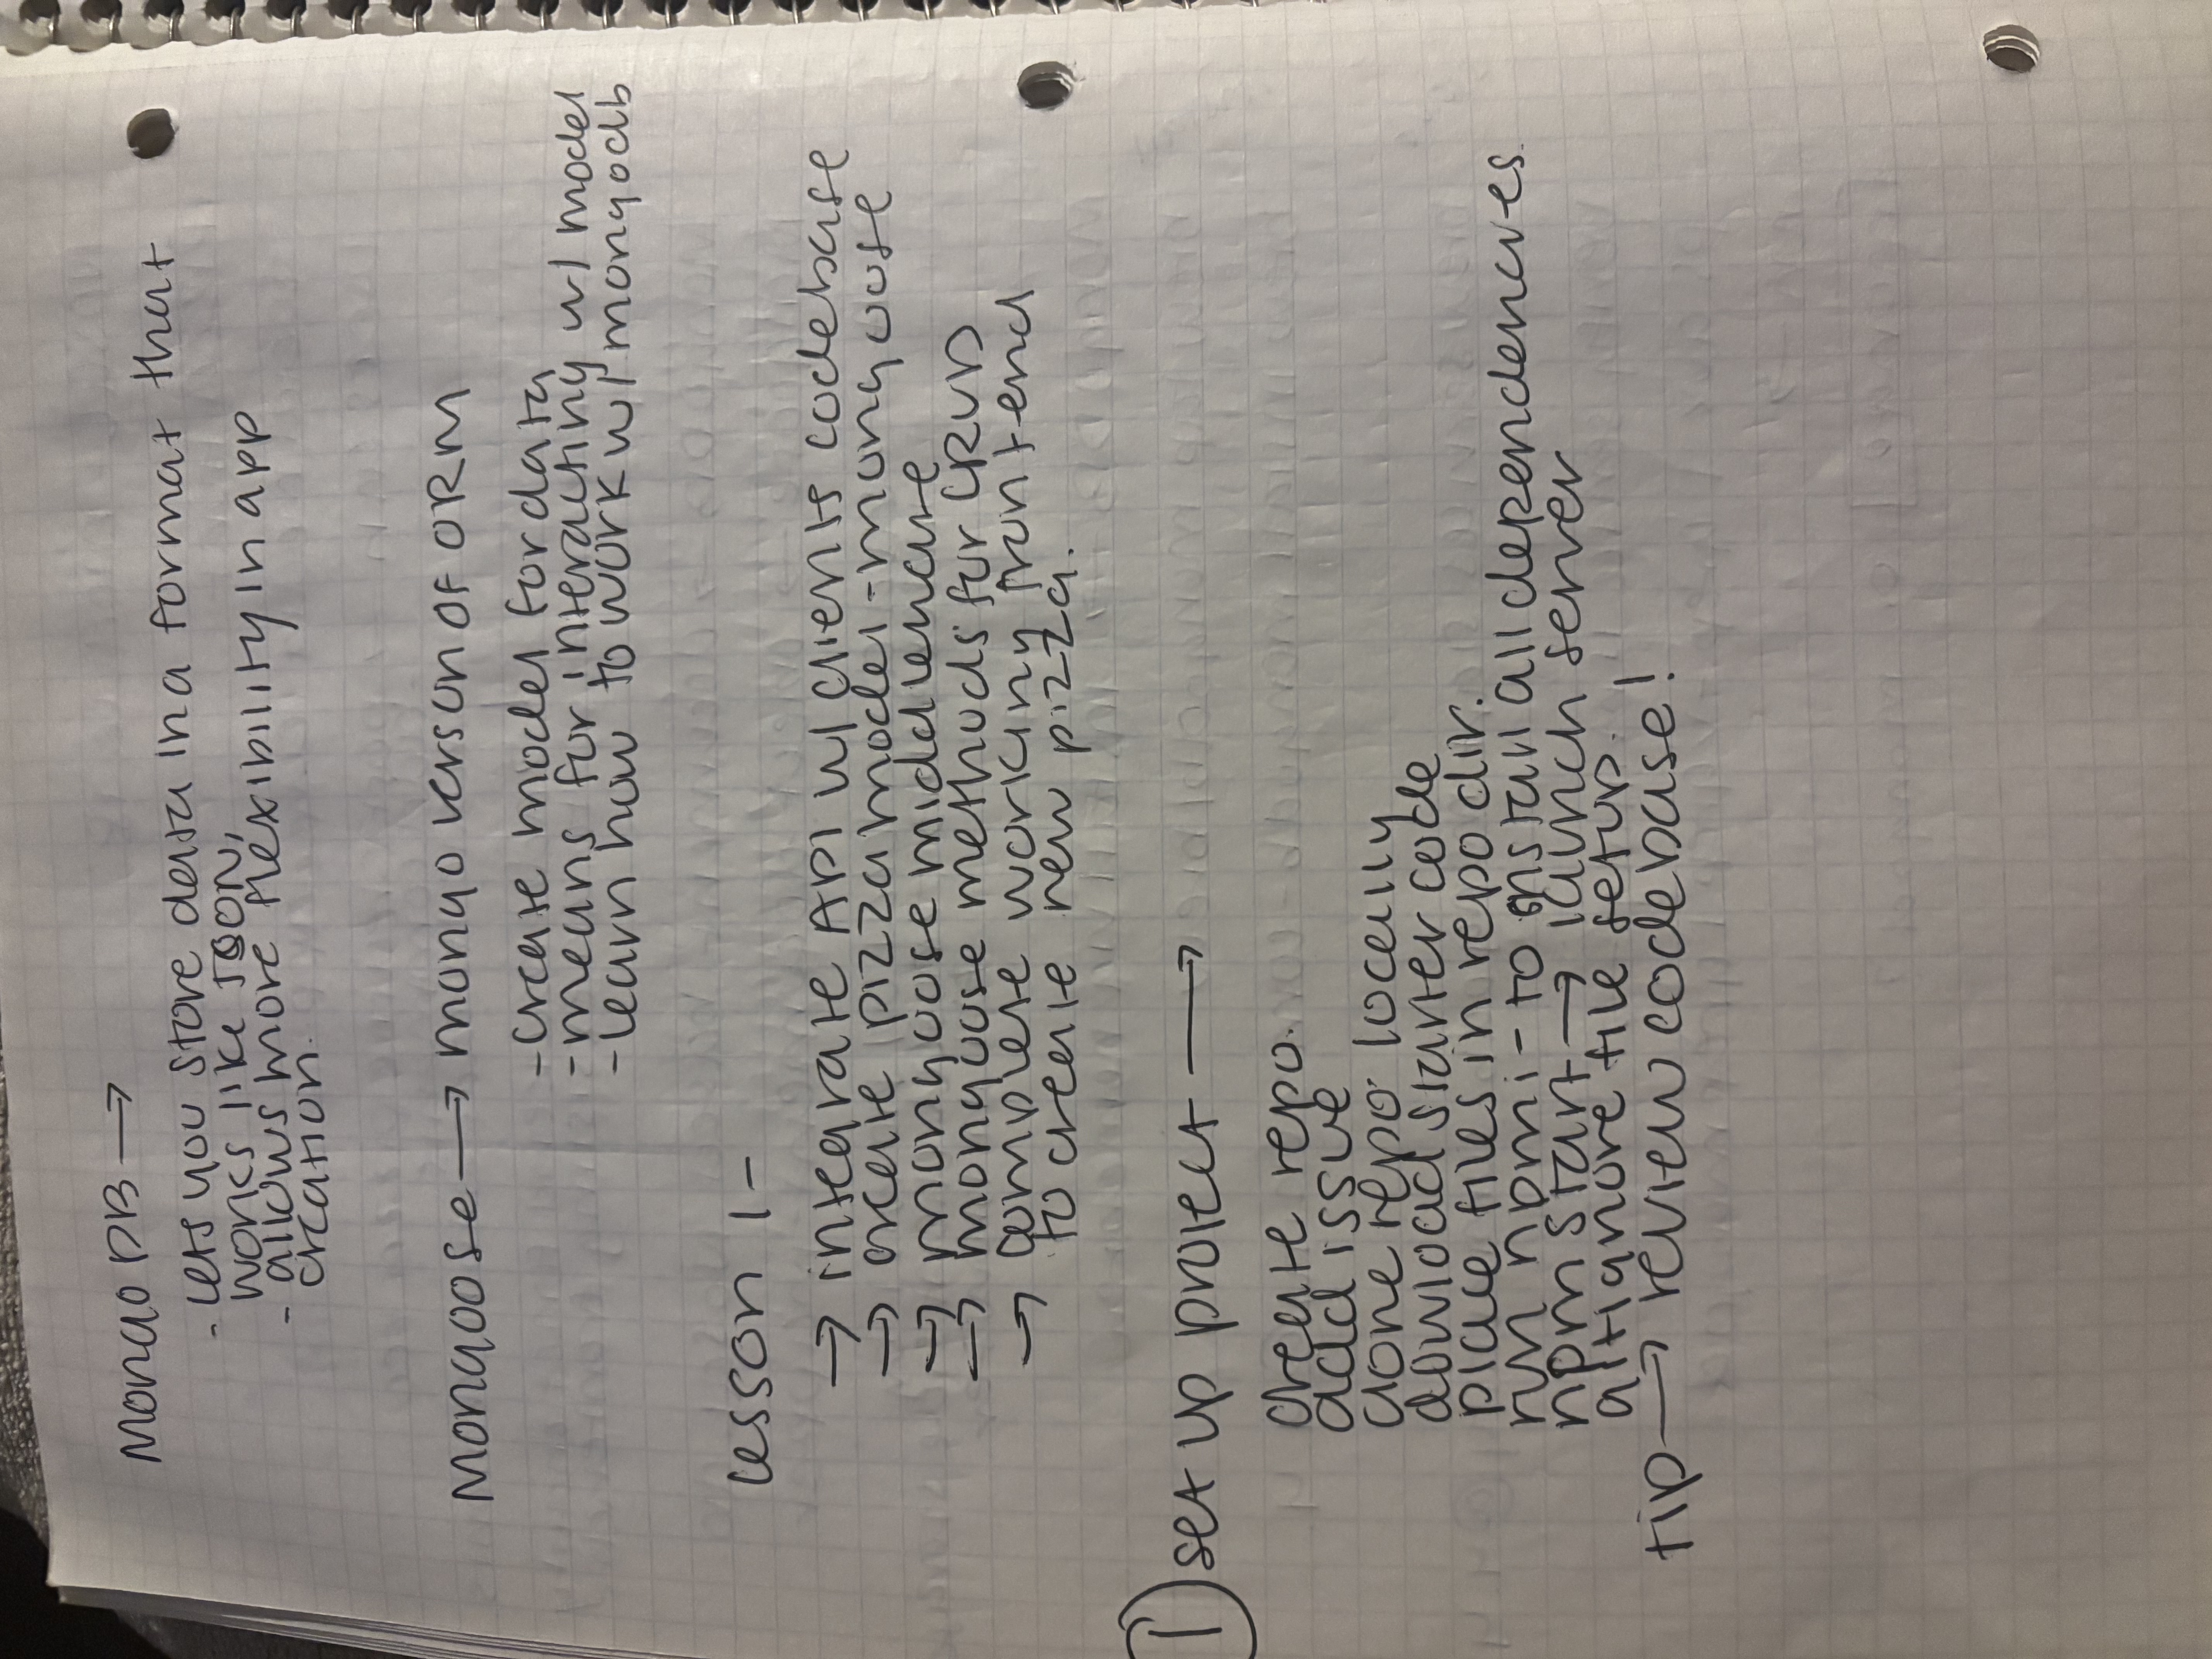 Mongo DB →
- lets you store data in a format that
works like JSON,
- allows more flexibility in app
creation.
Mongoose → mongo verson of ORM
- create model for data
- means for interacting w/ model
- learn how to work w/ mongodb
lesson 1 -
→ integrate API w/ clients codebase
→ create pizza model - mongoose
→ mongoose middleware
→ mongoose methods for CRUD
→ complete working front end
to create new pizza.
1 set up project →
create repo.
add issue
clone repo locally
dowload starter code
place files in repo dir.
run npm i - to install all dependencies.
npm start → launch server
gitignore file setup.
tip → review codebase!